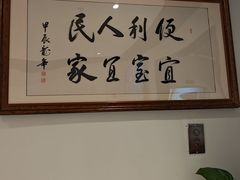 便利人民
宜室宜家
甲辰龙年